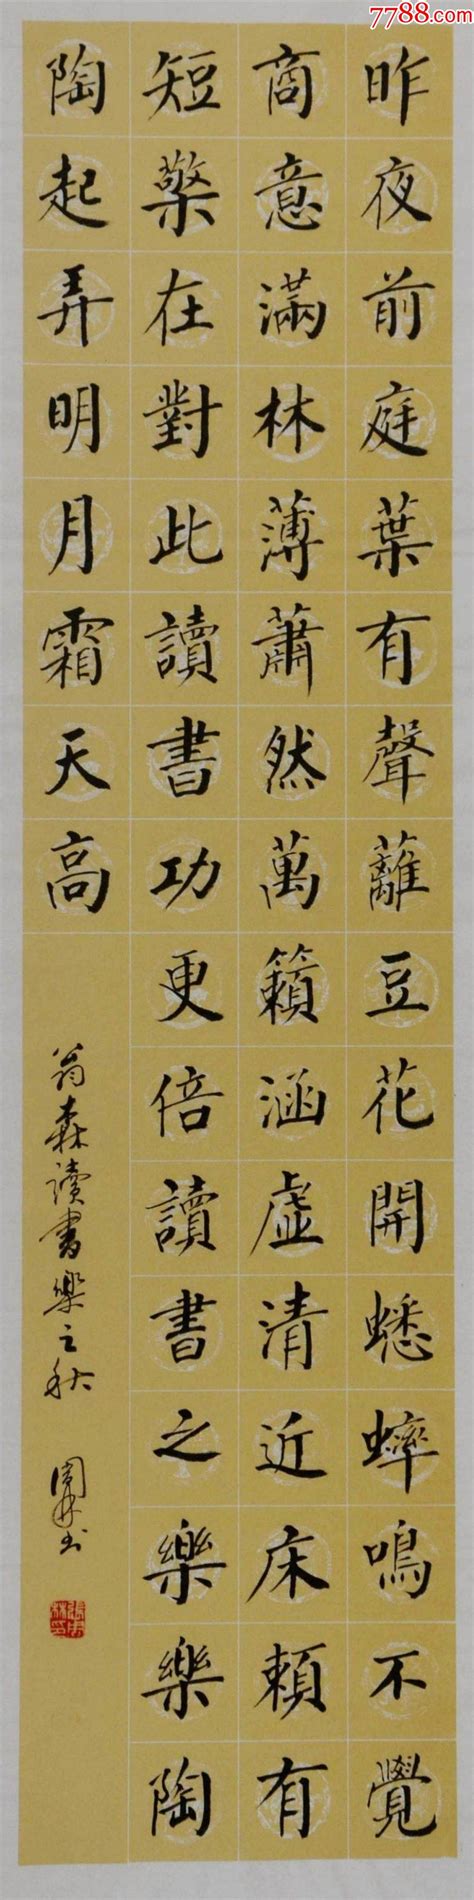 7788.com
昨夜前庭葉有聲蘺豆花開蟋蟀鳴不覺
商意滿林薄蕭然萬籟涵虛清近床賴有
短檠在對此讀書功更倍讀書之樂樂陶
陶起弄明月霜天高
翁森讀書樂之秋